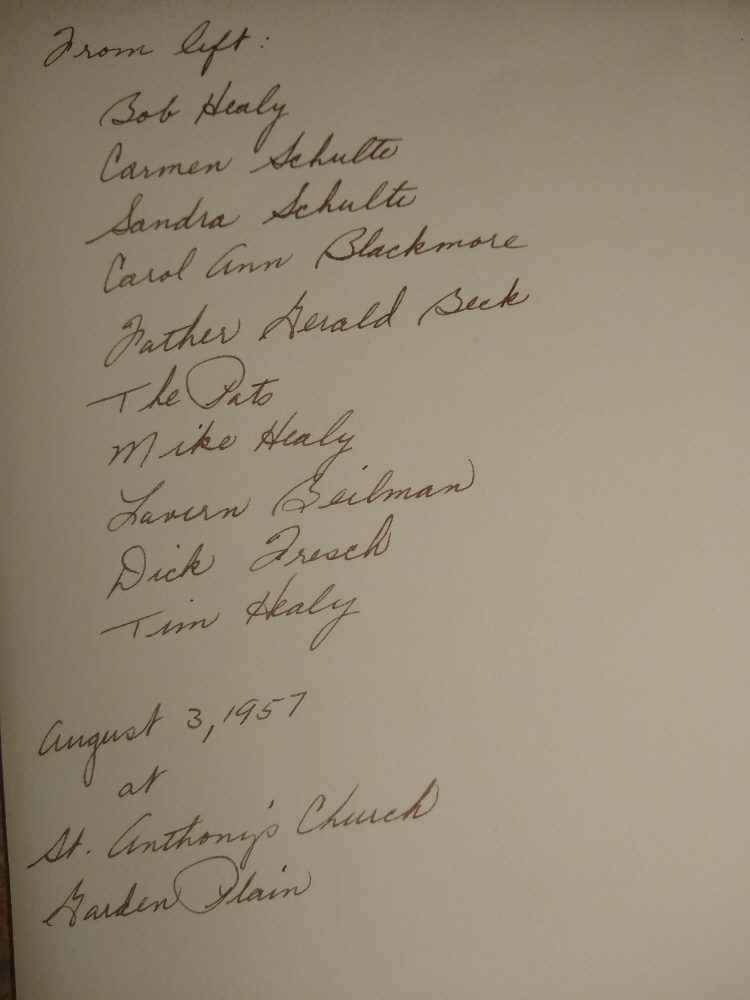 From left:
Bob Healy
Carmen Schulte
Sandra Schulte
Carol Ann Blackmore
Father Gerald Beck
The Pats
Mike Healy
Lavern Beilman
Dick Fresch
Tim Healy
August 3, 1957
at
St. Anthony's Church
Garden Plain